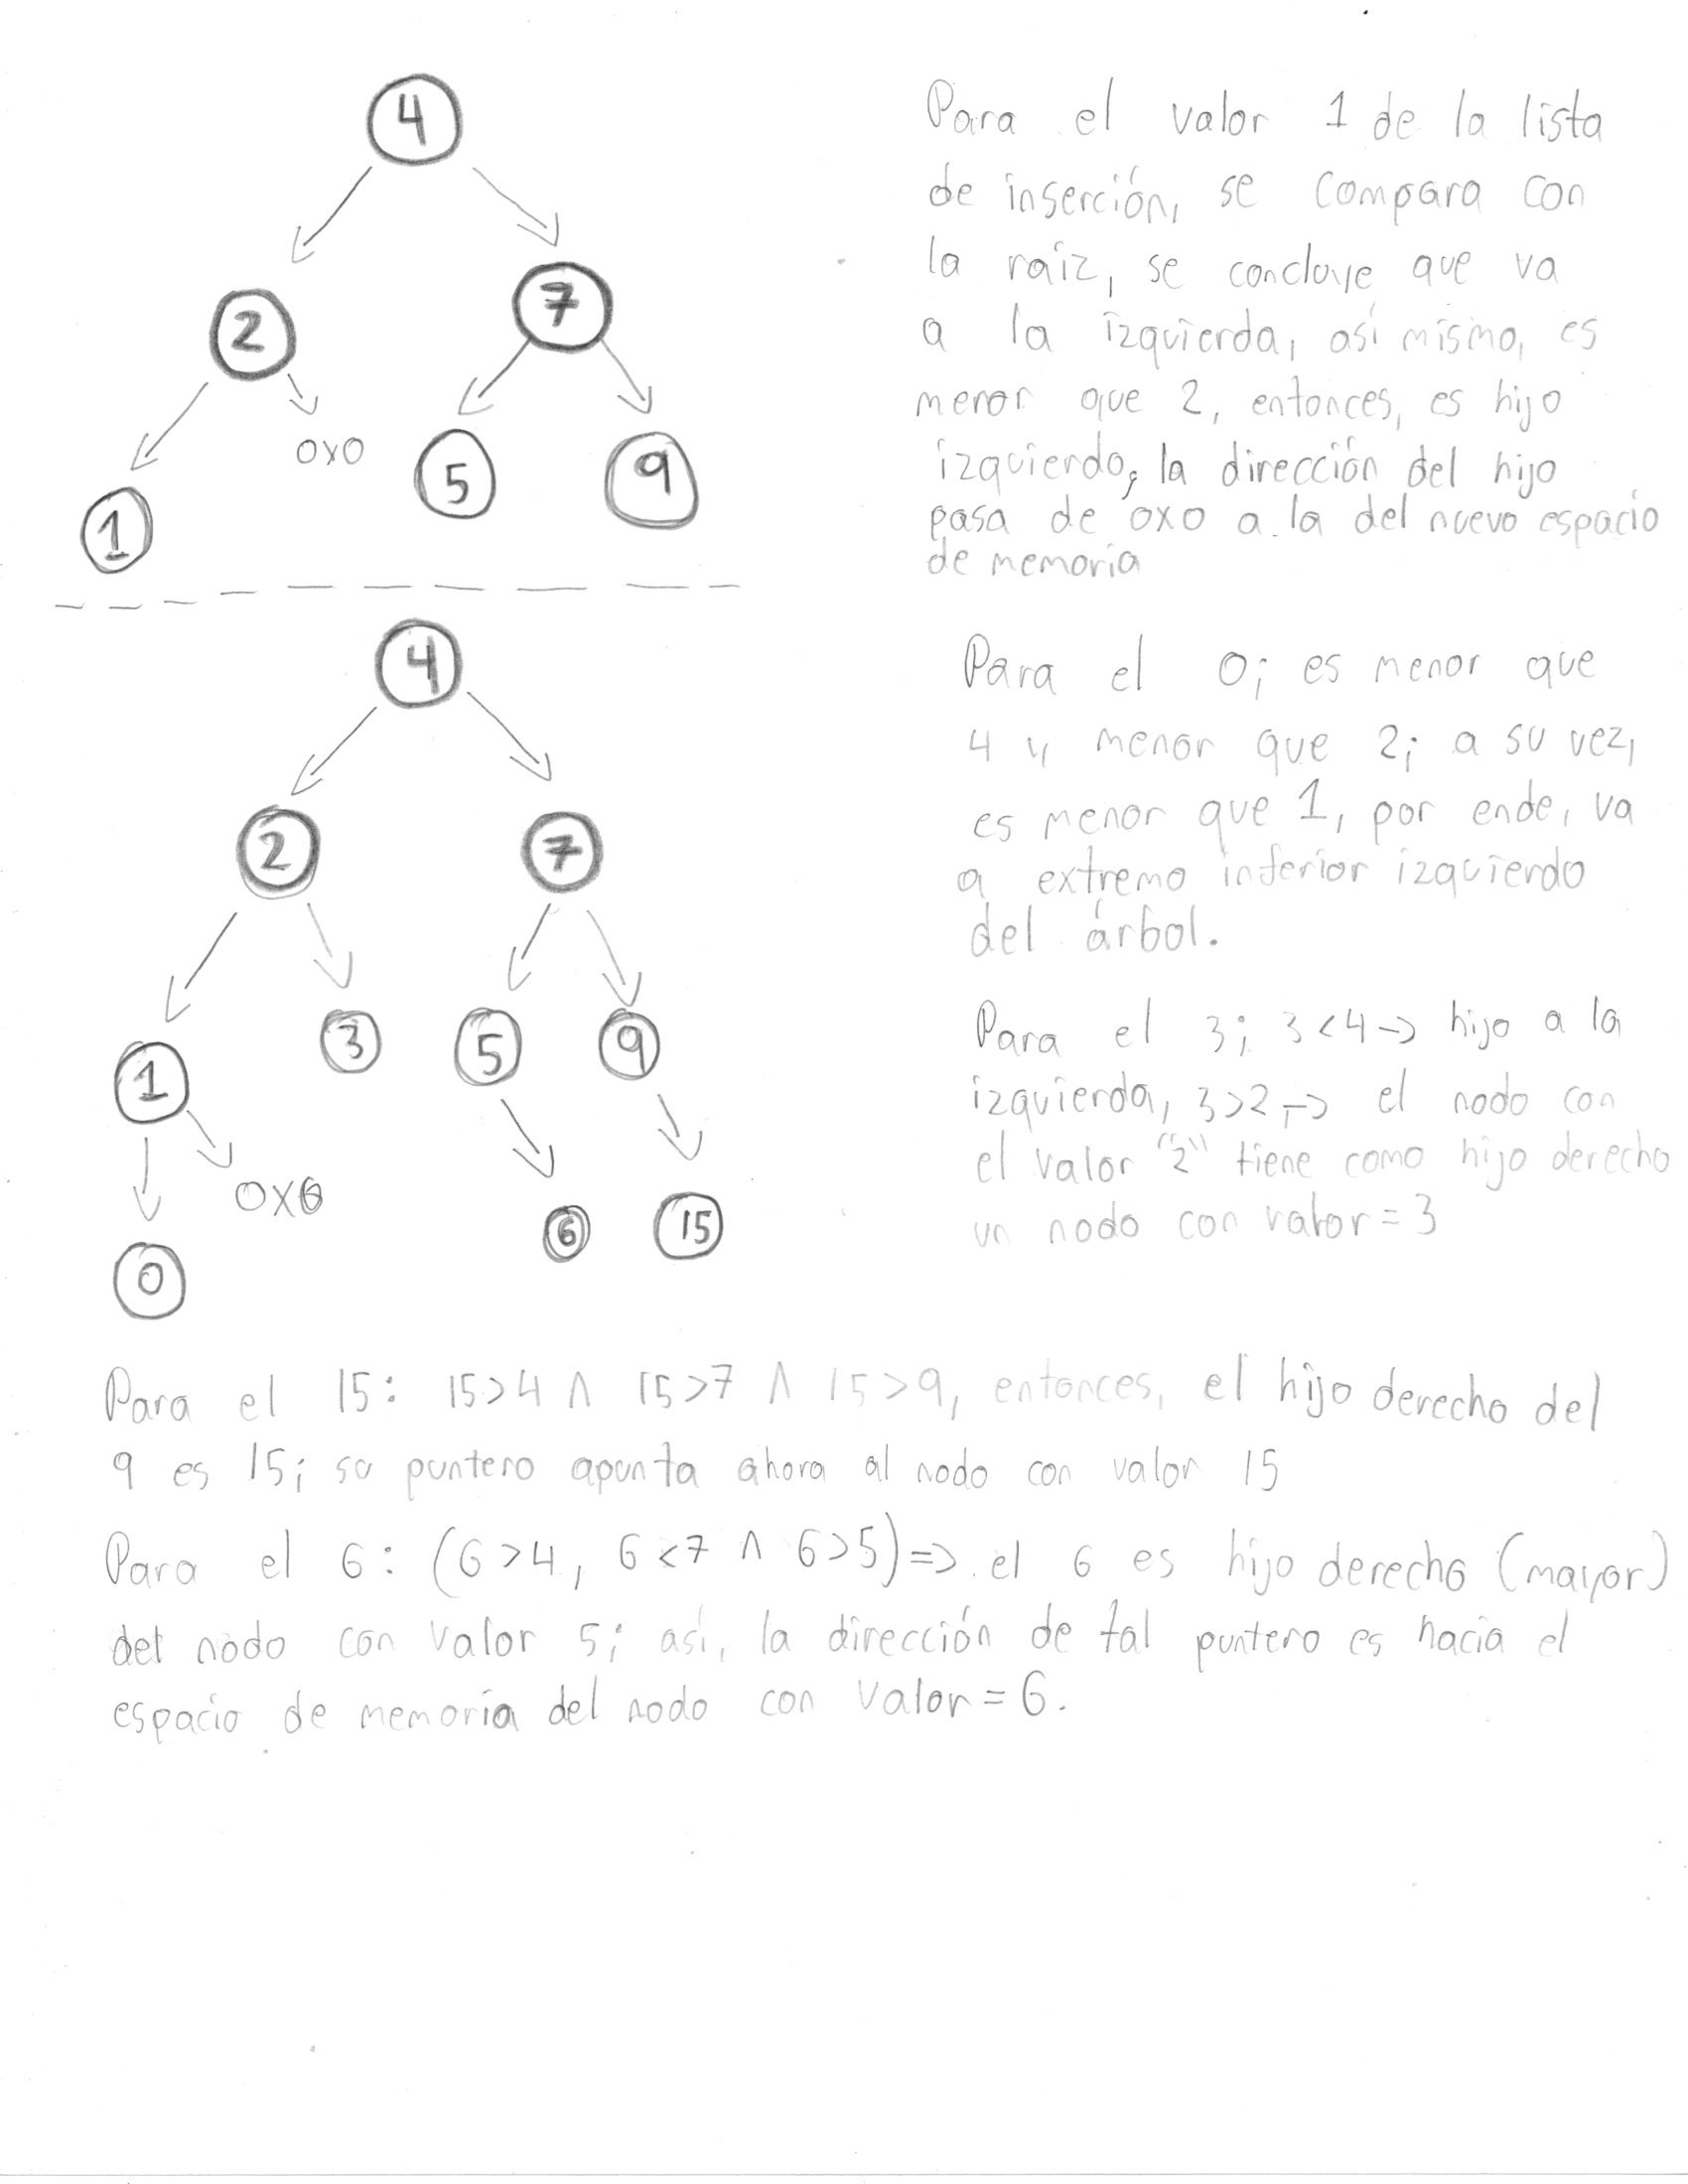 4
2
7
0x0
5
9
1
Para el valor 1 de la lista
de inserción, se compara con
la raíz, se concluye que va
a la izquierda, así mismo, es
menor que 2, entonces, es hijo
izquierdo, la dirección del hijo
pasa de 0x0 a la del nuevo espacio
de memoria
4
2
7
1
3
5
9
0x0
0
6
15
Para el 0; es menor que
4 y menor que 2; a su vez,
es menor que 1, por ende, va
a extremo inferior izquierdo
del árbol.
Para el 3; 3<4 -> hijo a la
izquierda, 3>2, -> el nodo con
el valor "2" tiene como hijo derecho
un nodo con valor = 3
Para el 15: 15>4 ∧ 15>7 ∧ 15>9, entonces, el hijo derecho del
9 es 15; su puntero apunta ahora al nodo con valor 15
Para el 6: (6>4, 6<7 ∧ 6>5) => el 6 es hijo derecho (mayor)
del nodo con valor 5; así, la dirección de tal puntero es hacia el
espacio de memoria del nodo con valor = 6.